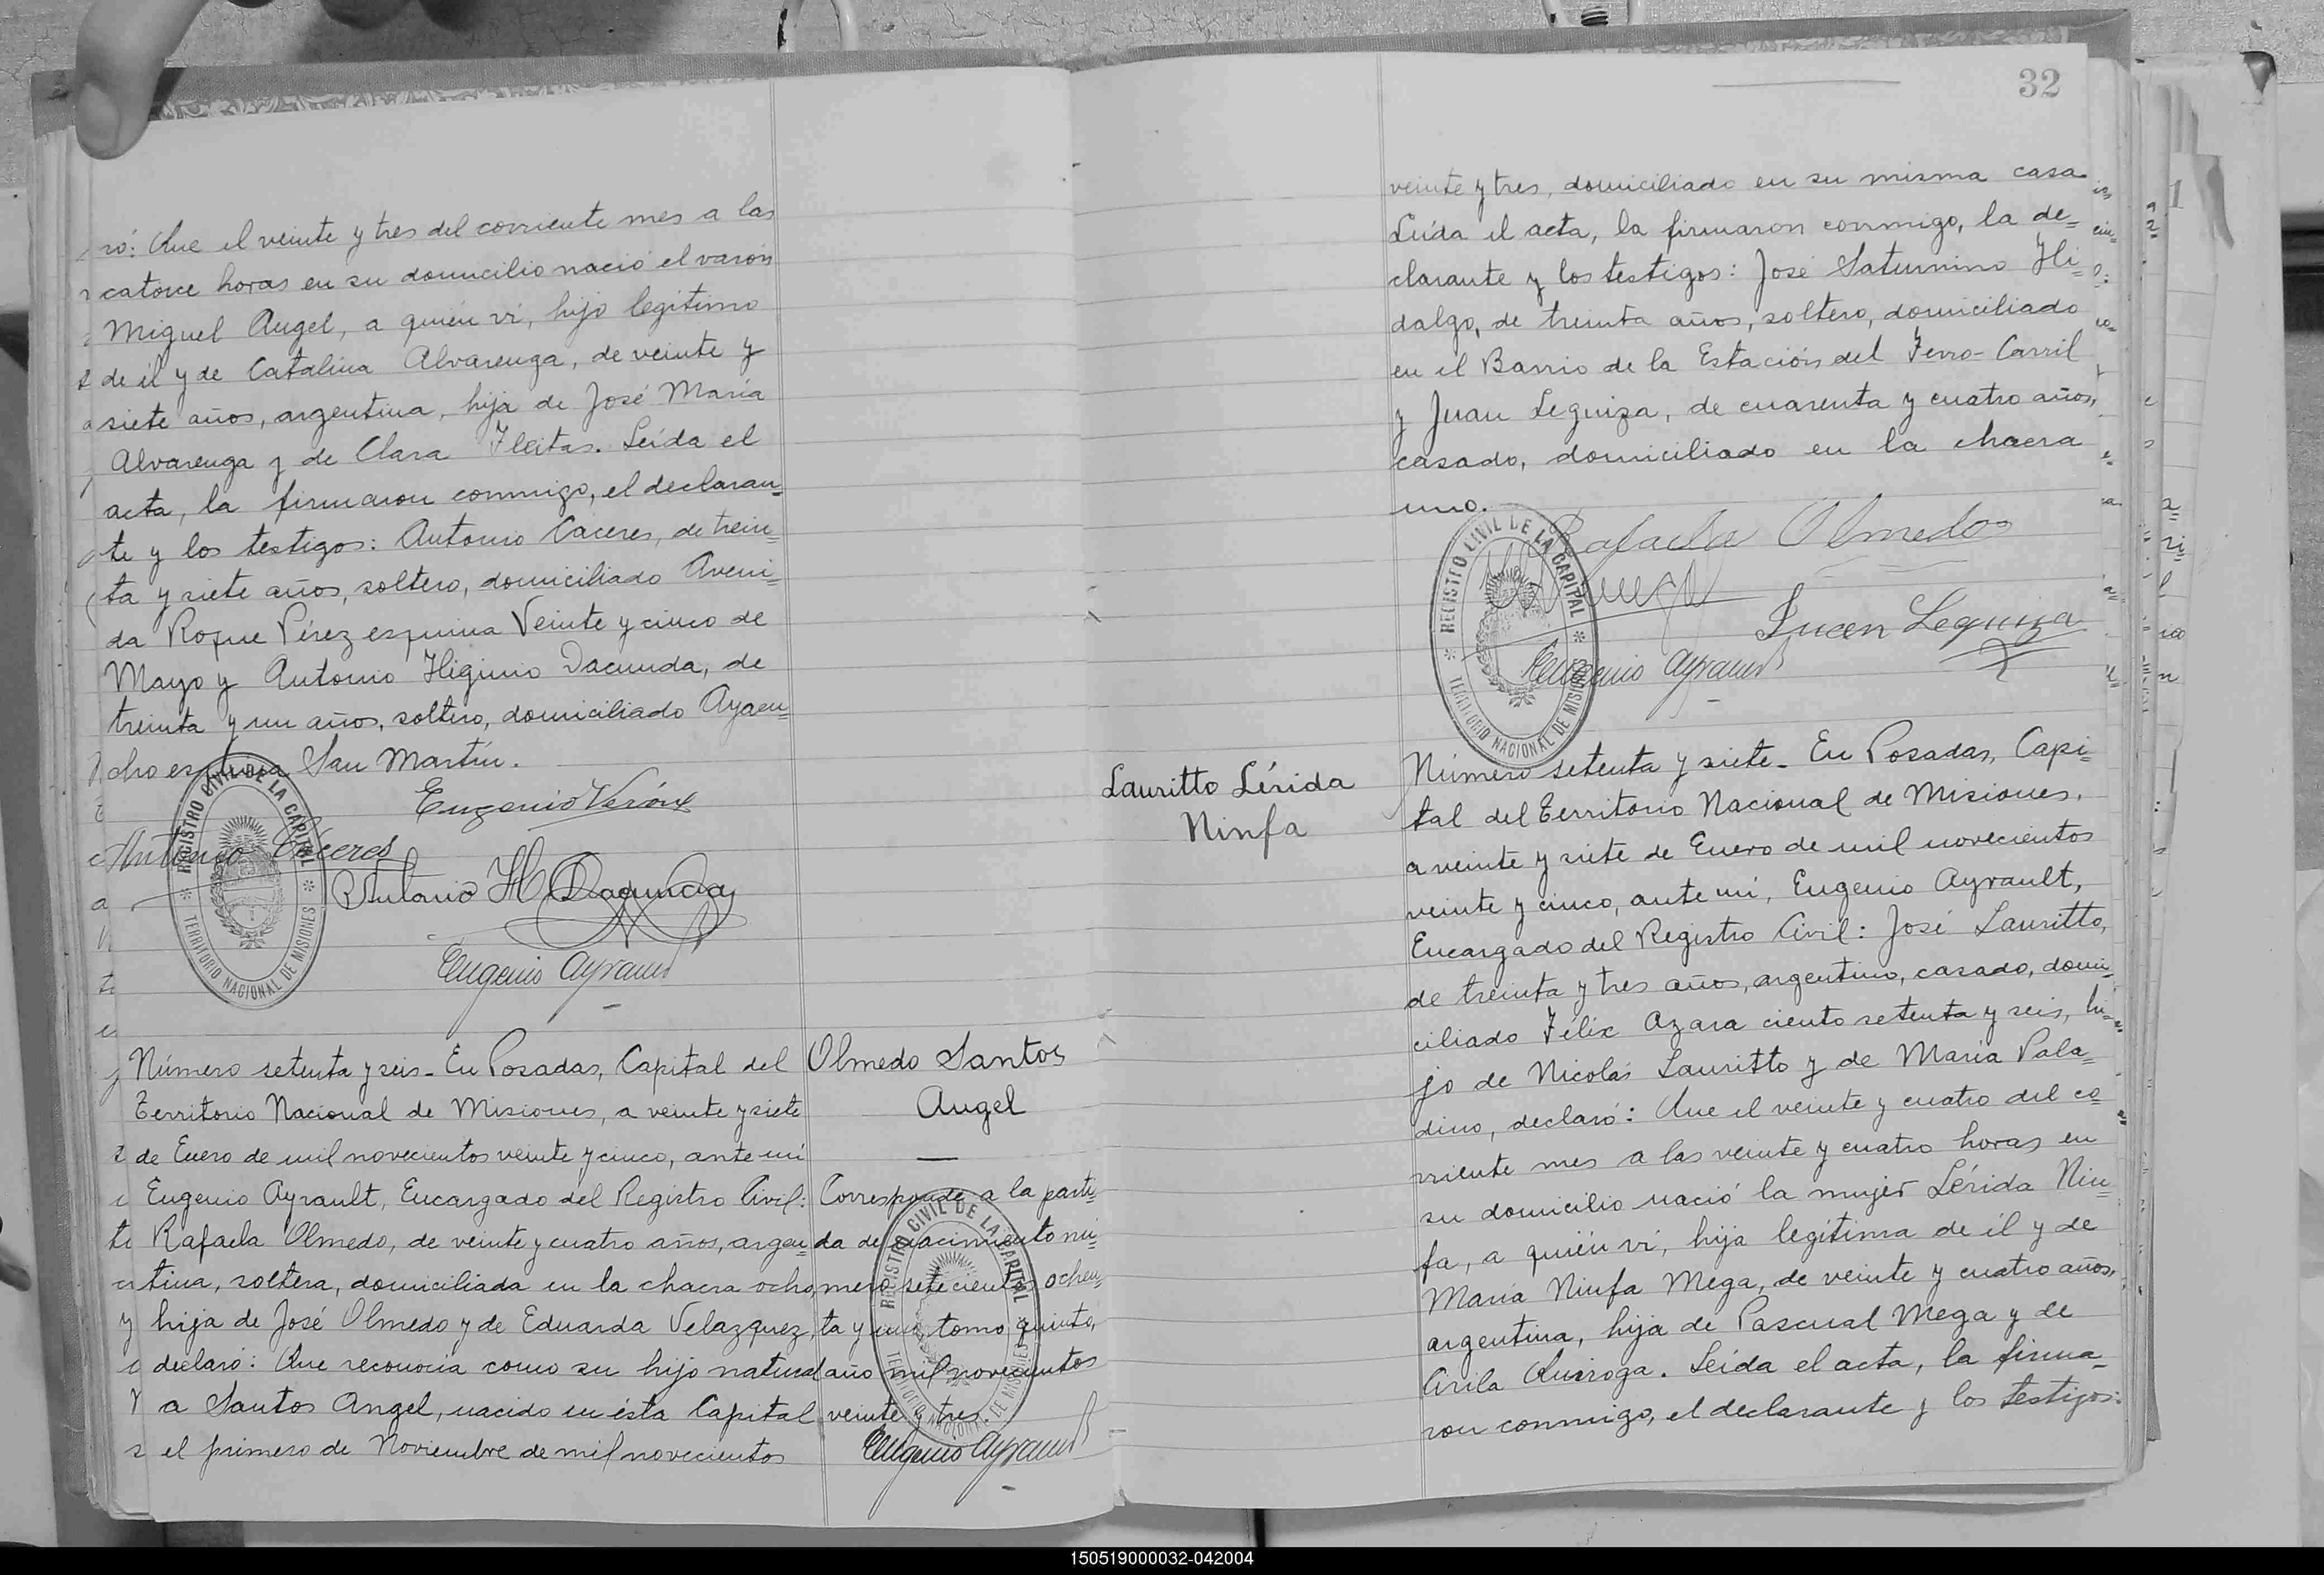 ró: Que el veinte y tres del corriente mes a las
catorce horas en su domicilio nació el varón
Miguel Angel, a quién ví, hijo legítimo
de él y de Catalina Alvarenga, de veinte y
siete años, argentina, hija de José María
Alvarenga y de Clara Fleitas. Leída el
acta, la firmaron conmigo, el declaran=
te y los testigos: Antonio Caceres, de trein=
ta y siete años, soltero, domiciliado Aveni=
da Roque Pérez esquina Veinte y cinco de
Mayo y Antonio Higinio Dacunda, de
treinta y un años, soltero, domiciliado Ayacu=
cho esquina San Martín.
Eugenio Verón
Antonio Caceres
Antonio H. Dacunda
Eugenio Ayrault
REGISTRO CIVIL DE LA CAPITAL
TERRITORIO NACIONAL DE MISIONES
Número setenta y seis - En Posadas, Capital del
Territorio Nacional de Misiones, a veinte y siete
de Enero de mil novecientos veinte y cinco, ante mí
Eugenio Ayrault, Encargado del Registro Civil:
Rafaela Olmedo, de veinte y cuatro años, argen=
tina, soltera, domiciliada en la chacra ocho,
hija de José Olmedo y de Eduarda Velazquez,
declaró: Que reconocía como su hijo natural
a Santos Angel, nacido en ésta Capital
el primero de Noviembre de mil novecientos
Olmedo Santos
Angel
Corresponde a la parti=
da de nacimiento nú=
mero setecientos ochen=
ta y uno, tomo quinto,
año mil novecientos
veinte y tres.
Eugenio Ayrault
REGISTRO CIVIL DE LA CAPITAL
TERRITORIO NACIONAL DE MISIONES
32
veinte y tres, domiciliado en su misma casa.
Leída el acta, la firmaron conmigo, la de=
clarante y los testigos: José Saturnino Hi=
dalgo, de treinta años, soltero, domiciliado
en el Barrio de la Estación del Ferro-Carril
y Juan Leguiza, de cuarenta y cuatro años,
casado, domiciliado en la chacra
uno.
Rafaela Olmedo
Juan Leguiza
Eugenio Ayrault
REGISTRO CIVIL DE LA CAPITAL
TERRITORIO NACIONAL DE MISIONES
Lauritto Lérida
Ninfa
Número setenta y siete - En Posadas, Capi=
tal del Territorio Nacional de Misiones,
a veinte y siete de Enero de mil novecientos
veinte y cinco, ante mí, Eugenio Ayrault,
Encargado del Registro Civil: José Lauritto,
de treinta y tres años, argentino, casado, domi=
ciliado Félix Azara ciento setenta y seis, hi=
jo de Nicolás Lauritto y de María Pala=
dino, declaró: Que el veinte y cuatro del co=
rriente mes a las veinte y cuatro horas en
su domicilio nació la mujer Lérida Nin=
fa, a quién ví, hija legítima de él y de
María Ninfa Mega, de veinte y cuatro años,
argentina, hija de Pascual Mega y de
Quiroga. Leída el acta, la firma=
ron conmigo, el declarante y los testigos:
150519000032-042004